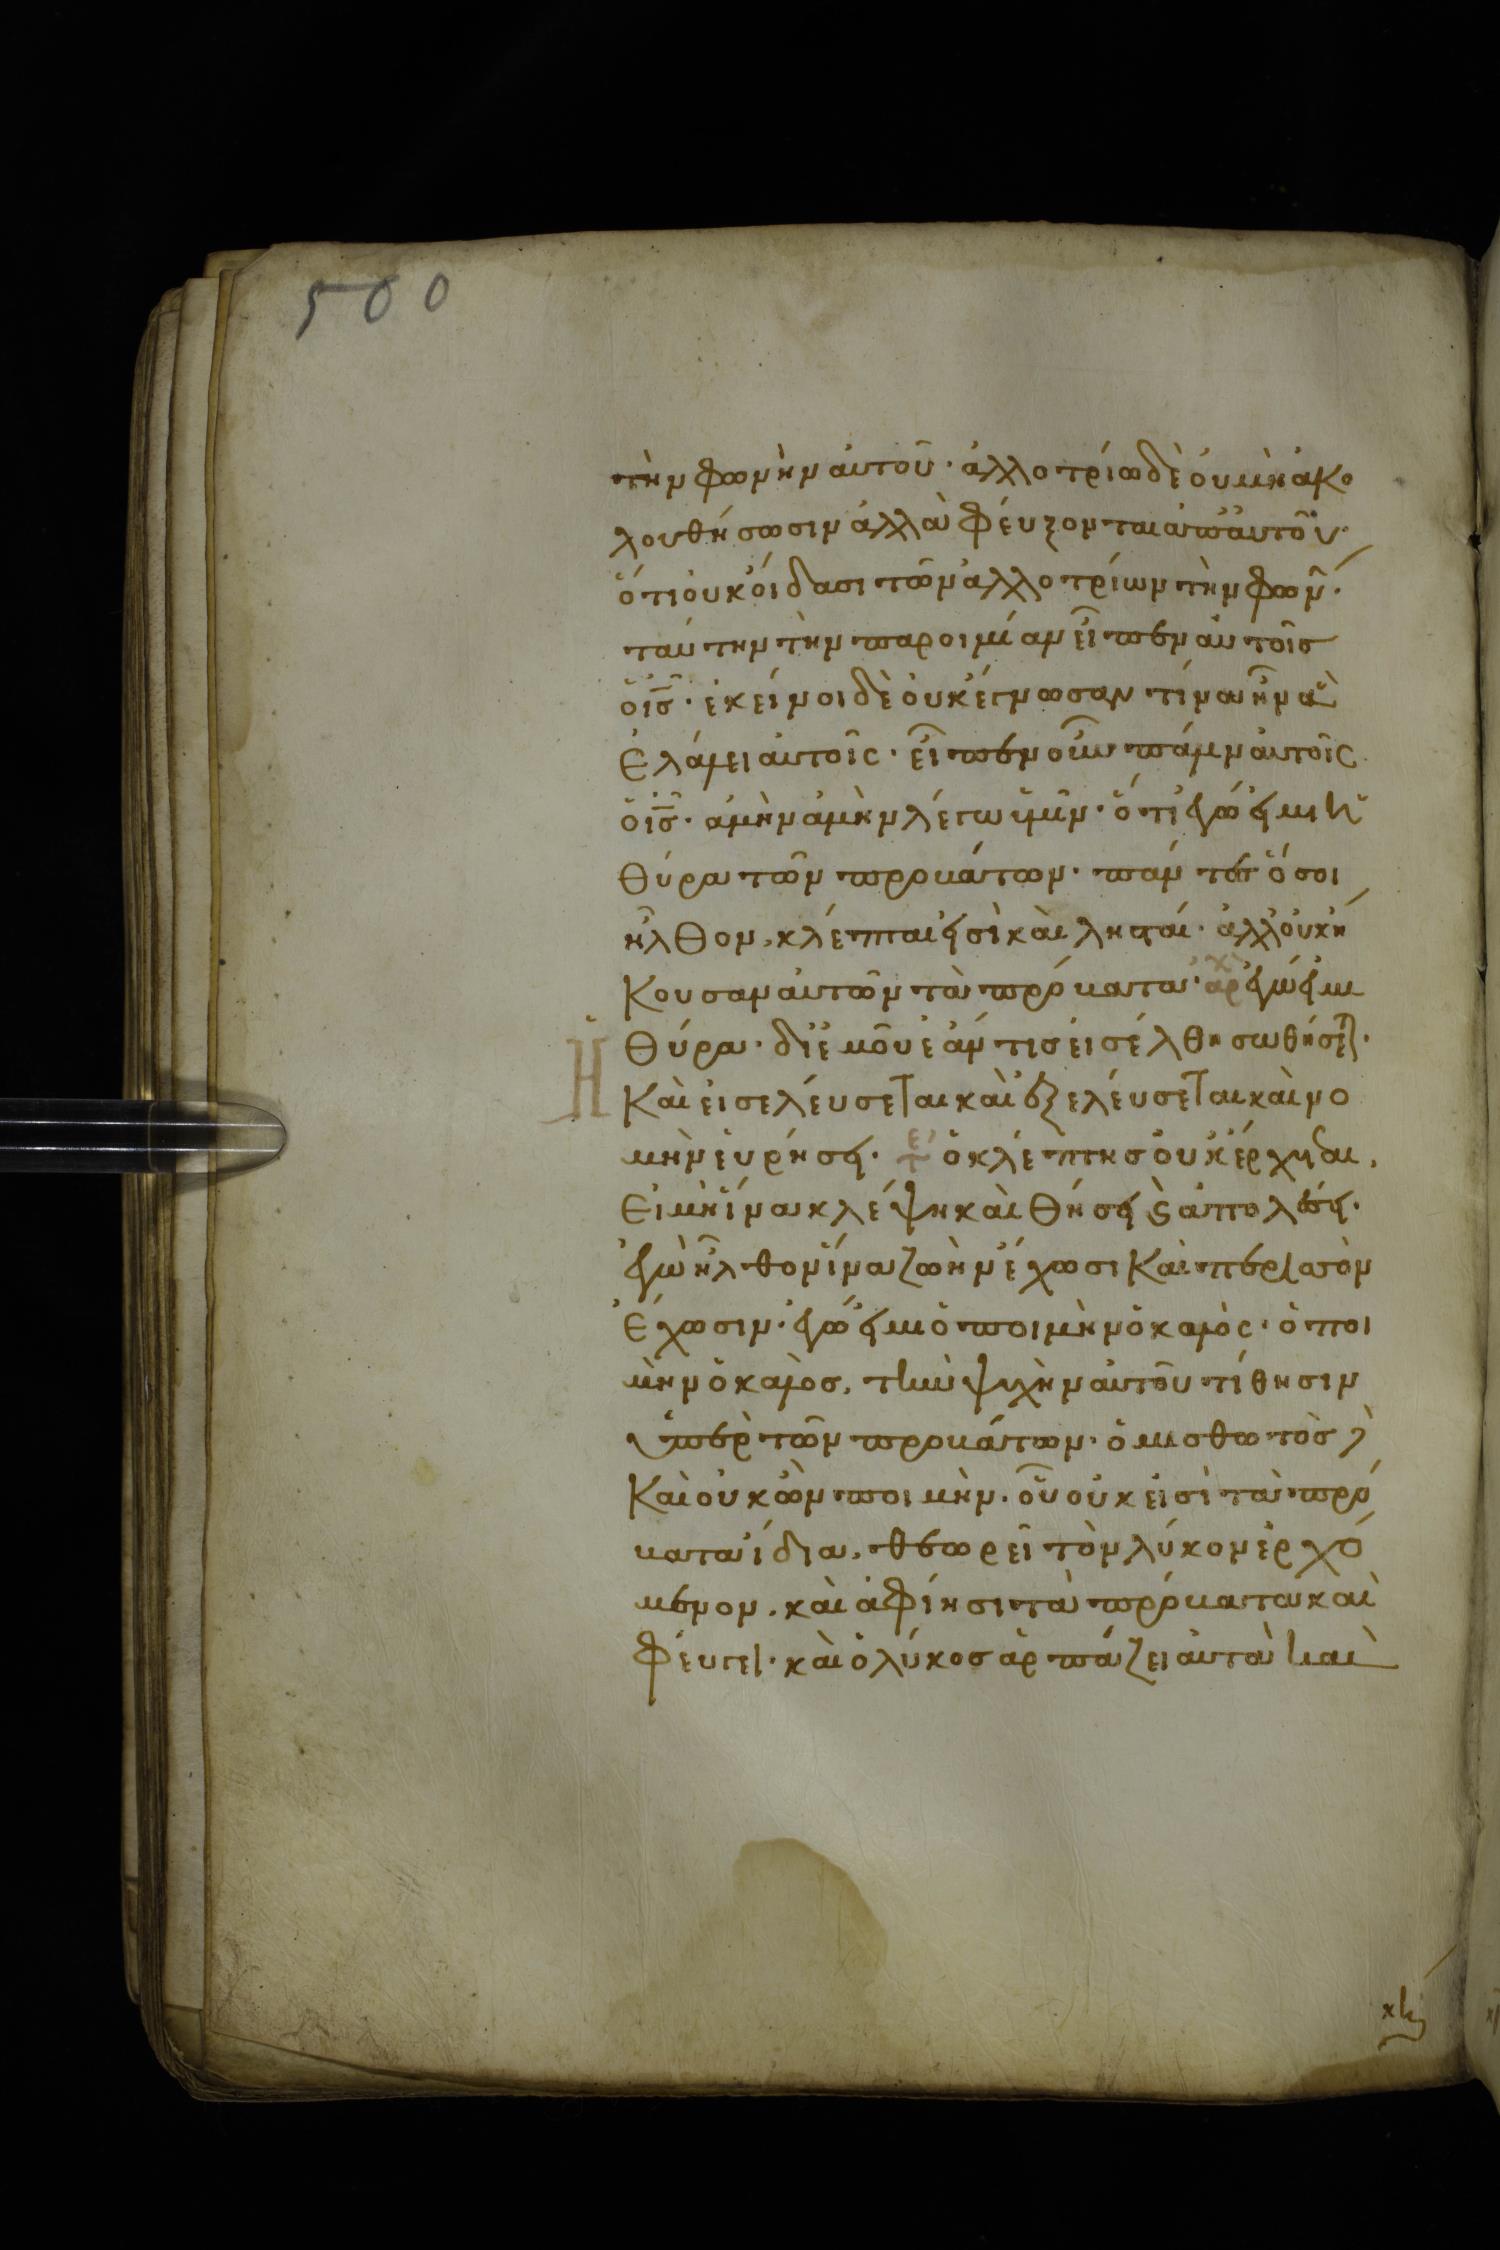 500
τὴν φωνὴν ἀυτοῦ· ἀλλοτρίω δὲ ὀυ μὴ ἀκο
λουθήσωσιν ἀλλὰ φέυξονται ἀπ' ἀυτοῦ·
ὅτι ὀυκ ὀίδασι τῶν ἀλλοτρίων τὴν φων̑·
ταύτην τὴν παροιμίαν εἶπεν ἀυτοῖσ
ὁ ι̅σ̅· ἐκεῖνοι δὲ ὀυκ ἔγνωσαν τίνα ἦν ἃ
ἐλάλει ἀυτοῖς· εἶπεν οὖν πάλιν ἀυτοῖς
ὁ ι̅σ̅· ἀμὴν ἀμὴν λέγω ὑμῖν· ὅτι ἐγώ ἐιμι ἡ
θύρα τῶν προβάτων· πάντεσ ὅσοι
ἦλθον, κλέπται ἐισὶ καὶ λησταί· ἀλλ' ὀυκ ἤ
κουσαν ἀυτῶν τὰ πρόβατα· ἀρχ ἐγώ ἐιμι
ἡ
θύρα· δι' ἐμοῦ ἐάν τισ ἐισέλθη σωθήσεται·
Η
καὶ ἐισελέυσεται καὶ ἐξελέυσεται καὶ νο
μὴν ἑυρήσει· τε ὁ κλέπτησ ὀυκ ἔρχεται,
ἐι μὴ ἵνα κλέψη καὶ θύση καὶ ἀπολέση·
ἐγὼ ἦλθον ἵνα ζωὴν ἔχωσι καὶ περισσὸν
ἔχωσιν· ἐγώ ἐιμι ὁ ποιμὴν ὁ καλός· ὁ ποι
μὴν ὁ καλὸσ, τὴν ψυχὴν ἀυτοῦ τίθησιν
ὑπὲρ τῶν προβάτων· ὁ μισθωτὸσ δὲ
καὶ ὀυκ ὢν ποιμὴν· οὗ ὀυκ ἐισὶ τὰ πρό
βατα ἴδια, θεωρεῖ τὸν λύκον ἐρχό
μενον, καὶ ἀφίησι τὰ πρόβατα καὶ
φέυγει· καὶ ὁ λύκοσ ἁρπάζει ἀυτὰ καὶ